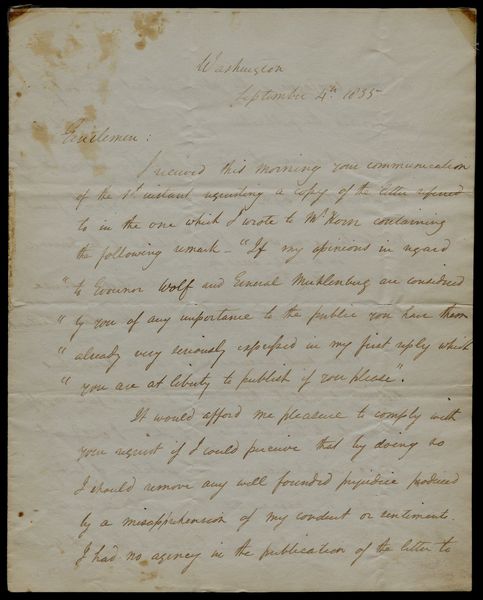 Washington
September 4th 1835
Gentlemen:
I received this morning your communication
of the 1st instant requesting a copy of the letter refered
to in the one which I wrote to Mr Horn containing
the following remark - "If my opinions in regard
"to Governor Wolf and General Muhlenburg are considered
"by you of any importance to the public you have them
"already very seriously expressed in my first reply which
"you are at liberty to publish if you please".
It would afford me pleasure to comply with
your request if I could perceive that by doing so
I should remove any well founded prejudice produced
by a misapprehension of my conduct or sentiments.
I had no agency in the publication of the letter to